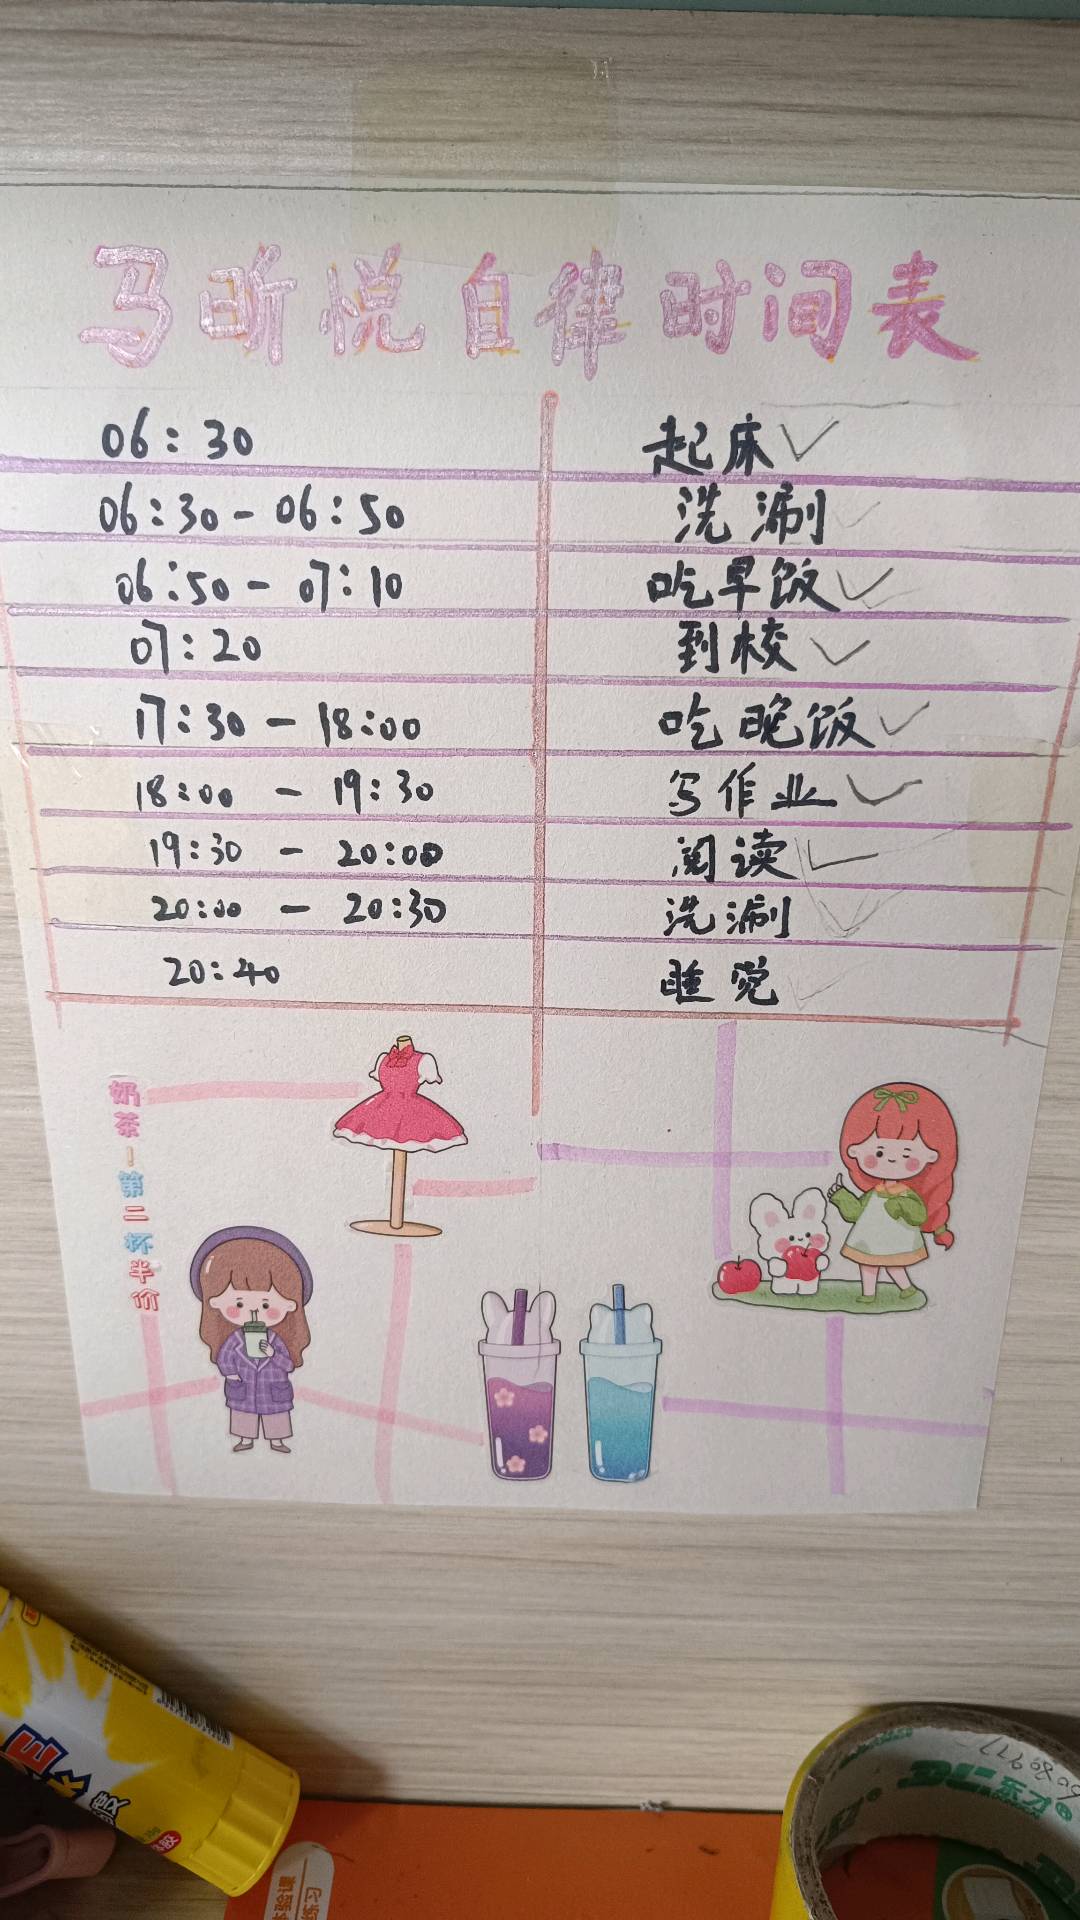 马昕悦自律时间表
06:30 起床
06:30-06:50 洗涮
06:50-07:10 吃早饭
07:20 到校
17:30-18:00 吃晚饭
18:00-19:30 写作业
19:30-20:00 阅读
20:00-20:30 洗涮
20:40 睡觉
奶茶-第二杯半价
东才
体验课
练习